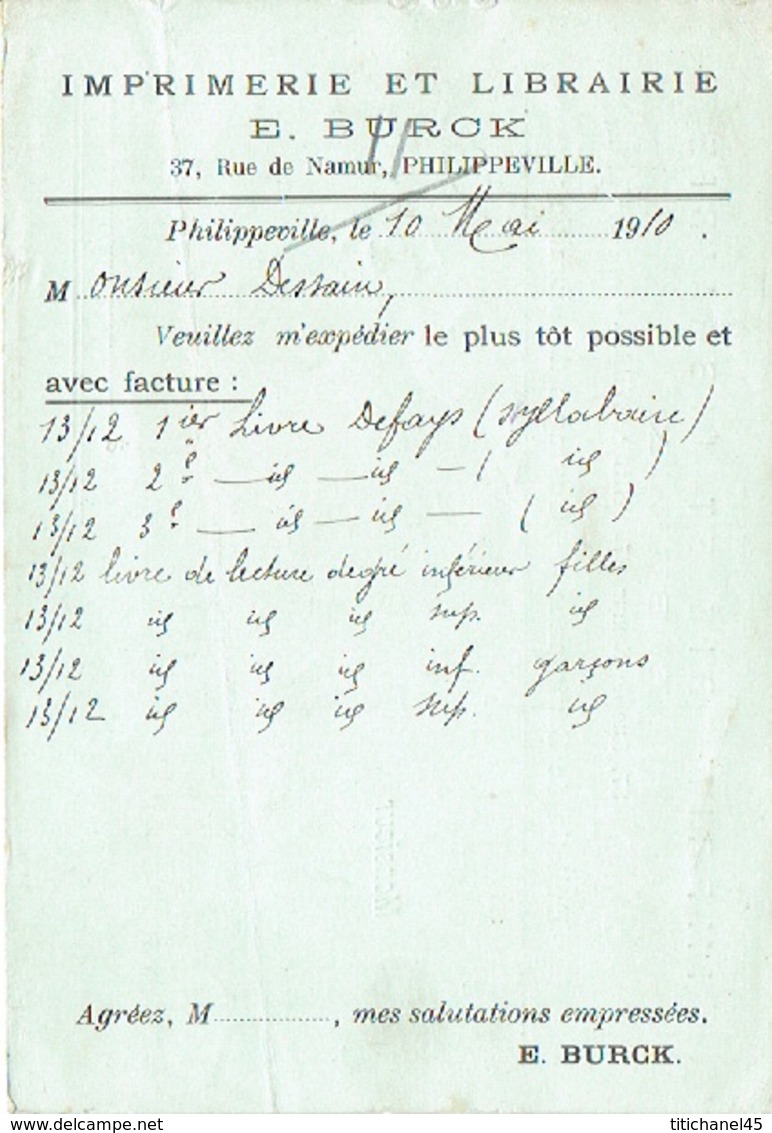 IMPRIMERIE ET LIBRAIRIE
E. BURCK
37, Rue de Namur, PHILIPPEVILLE.
Philippeville, le 10 Mai 1910.
Monsieur Dessain,
Veuillez m'expédier le plus tôt possible et
avec facture :
13/12 1ier Livre Defays (syllabaire)
13/12 2e — id — id — ( id )
13/12 3e — id — id — ( id )
13/12 livre de lecture degré inférieur filles
13/12 id id id sup. id
13/12 id id id inf. garçons
13/12 id id id sup. id
Monsieur
Agréez, M............, mes salutations empressées.
E. BURCK.
titichanel45